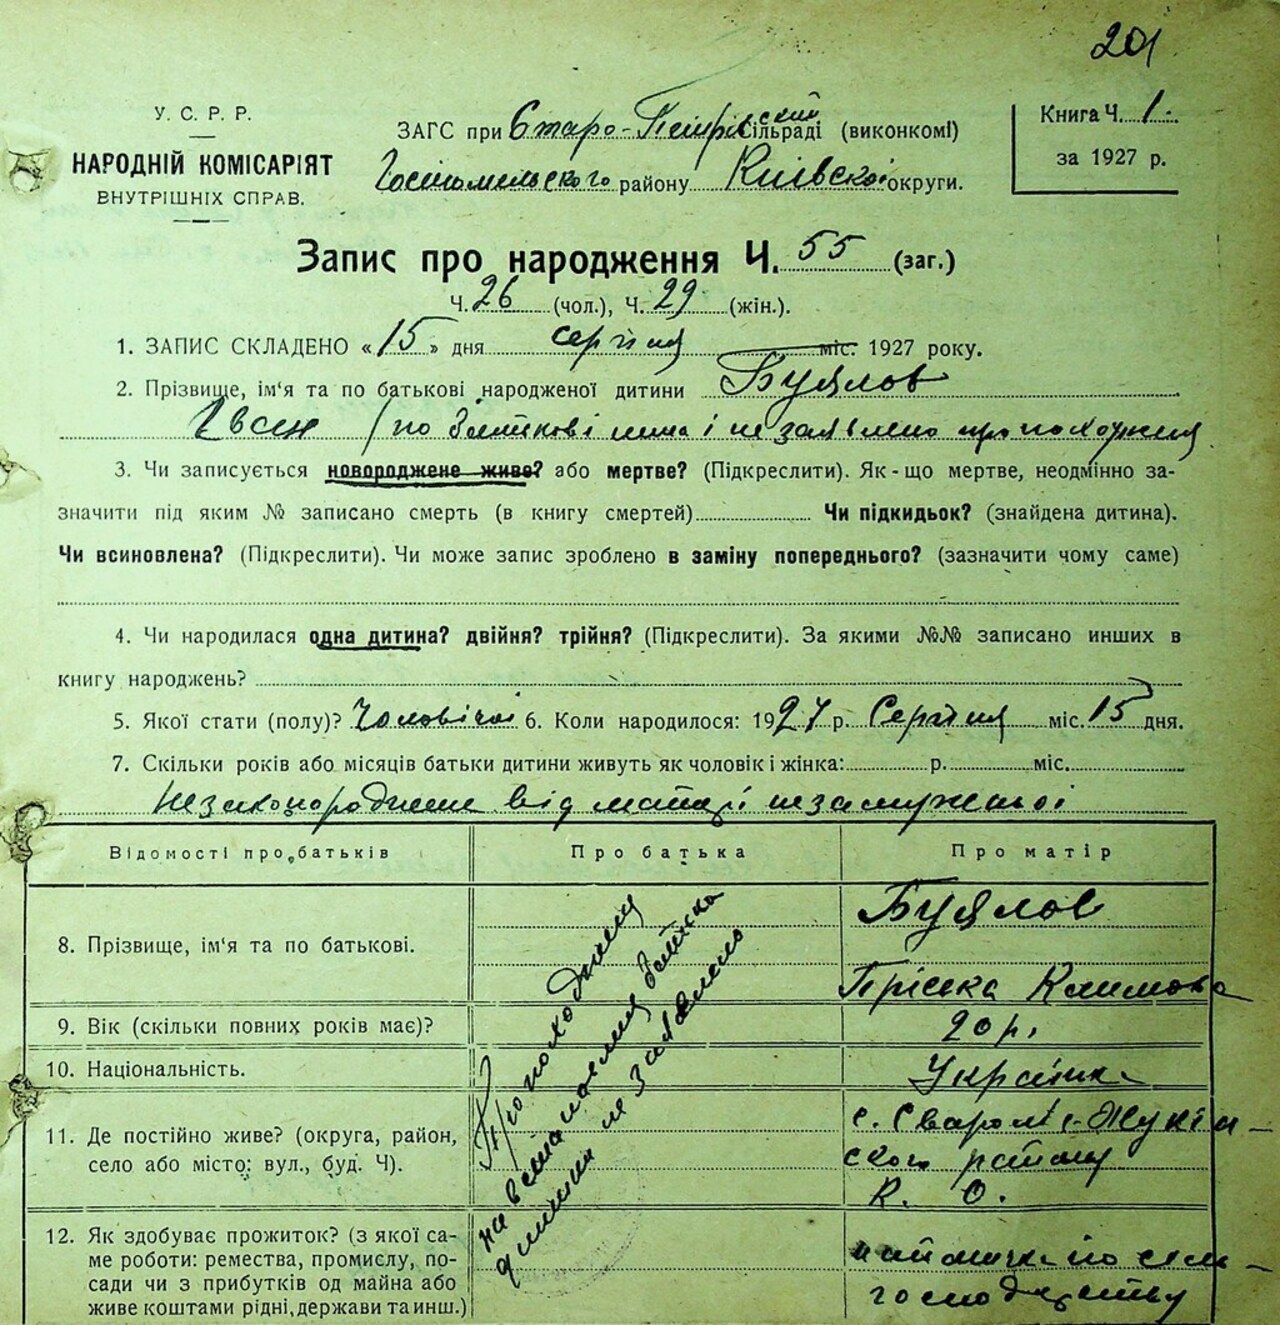 201
У. С. Р. Р.
НАРОДНІЙ КОМІСАРІЯТ
ВНУТРІШНІХ СПРАВ.
ЗАГС при Старо-Петрівський сільраді (виконкомі)
Гостомельського району Київської округи.
Книга Ч. 1.
за 1927 р.
Запис про народження Ч. 55 (заг.)
Ч. 26 (чол.), Ч. 29 (жін.).
1. ЗАПИС СКЛАДЕНО «15» дня серпня міс. 1927 року.
2. Прізвище, ім'я та по батькові народженої дитини Буялов
/по батькові нема і не заявлено про походження
3. Чи записується новороджене живе? або мертве? (Підкреслити). Як-що мертве, неодмінно за-
значити під яким № записано смерть (в книгу смертей) Чи підкидьок? (знайдена дитина).
Чи всиновлена? (Підкреслити). Чи може запис зроблено в заміну попереднього? (зазначити чому саме)
4. Чи народилася одна дитина? двійня? трійня? (Підкреслити). За якими №№ записано инших в
книгу народжень?
5. Якої стати (полу)? Чоловічої 6. Коли народилося: 1927 р. Серпня міс. 15 дня.
7. Скільки років або місяців батьки дитини живуть як чоловік і жінка: р. міс.
Незаконороджене від матері незамужньої
Відомості про батьків
Про батька
Про матір
8. Прізвище, ім'я та по батькові.
Буялов
Пріська Климова
9. Вік (скільки повних років має)?
20 р.
10. Національність.
Українка
11. Де постійно живе? (округа, район,
село або місто: вул., буд. Ч).
с. Сваромʼє Жукін-
ського району
К. О.
12. Як здобуває прожиток? (з якої са-
ме роботи: ремества, промислу, по-
сади чи з прибутків од майна або
живе коштами рідні, держави та инш.)
наймичка по сіль-
господарству
Про походження
на встановлення батька
дитини не заявлено